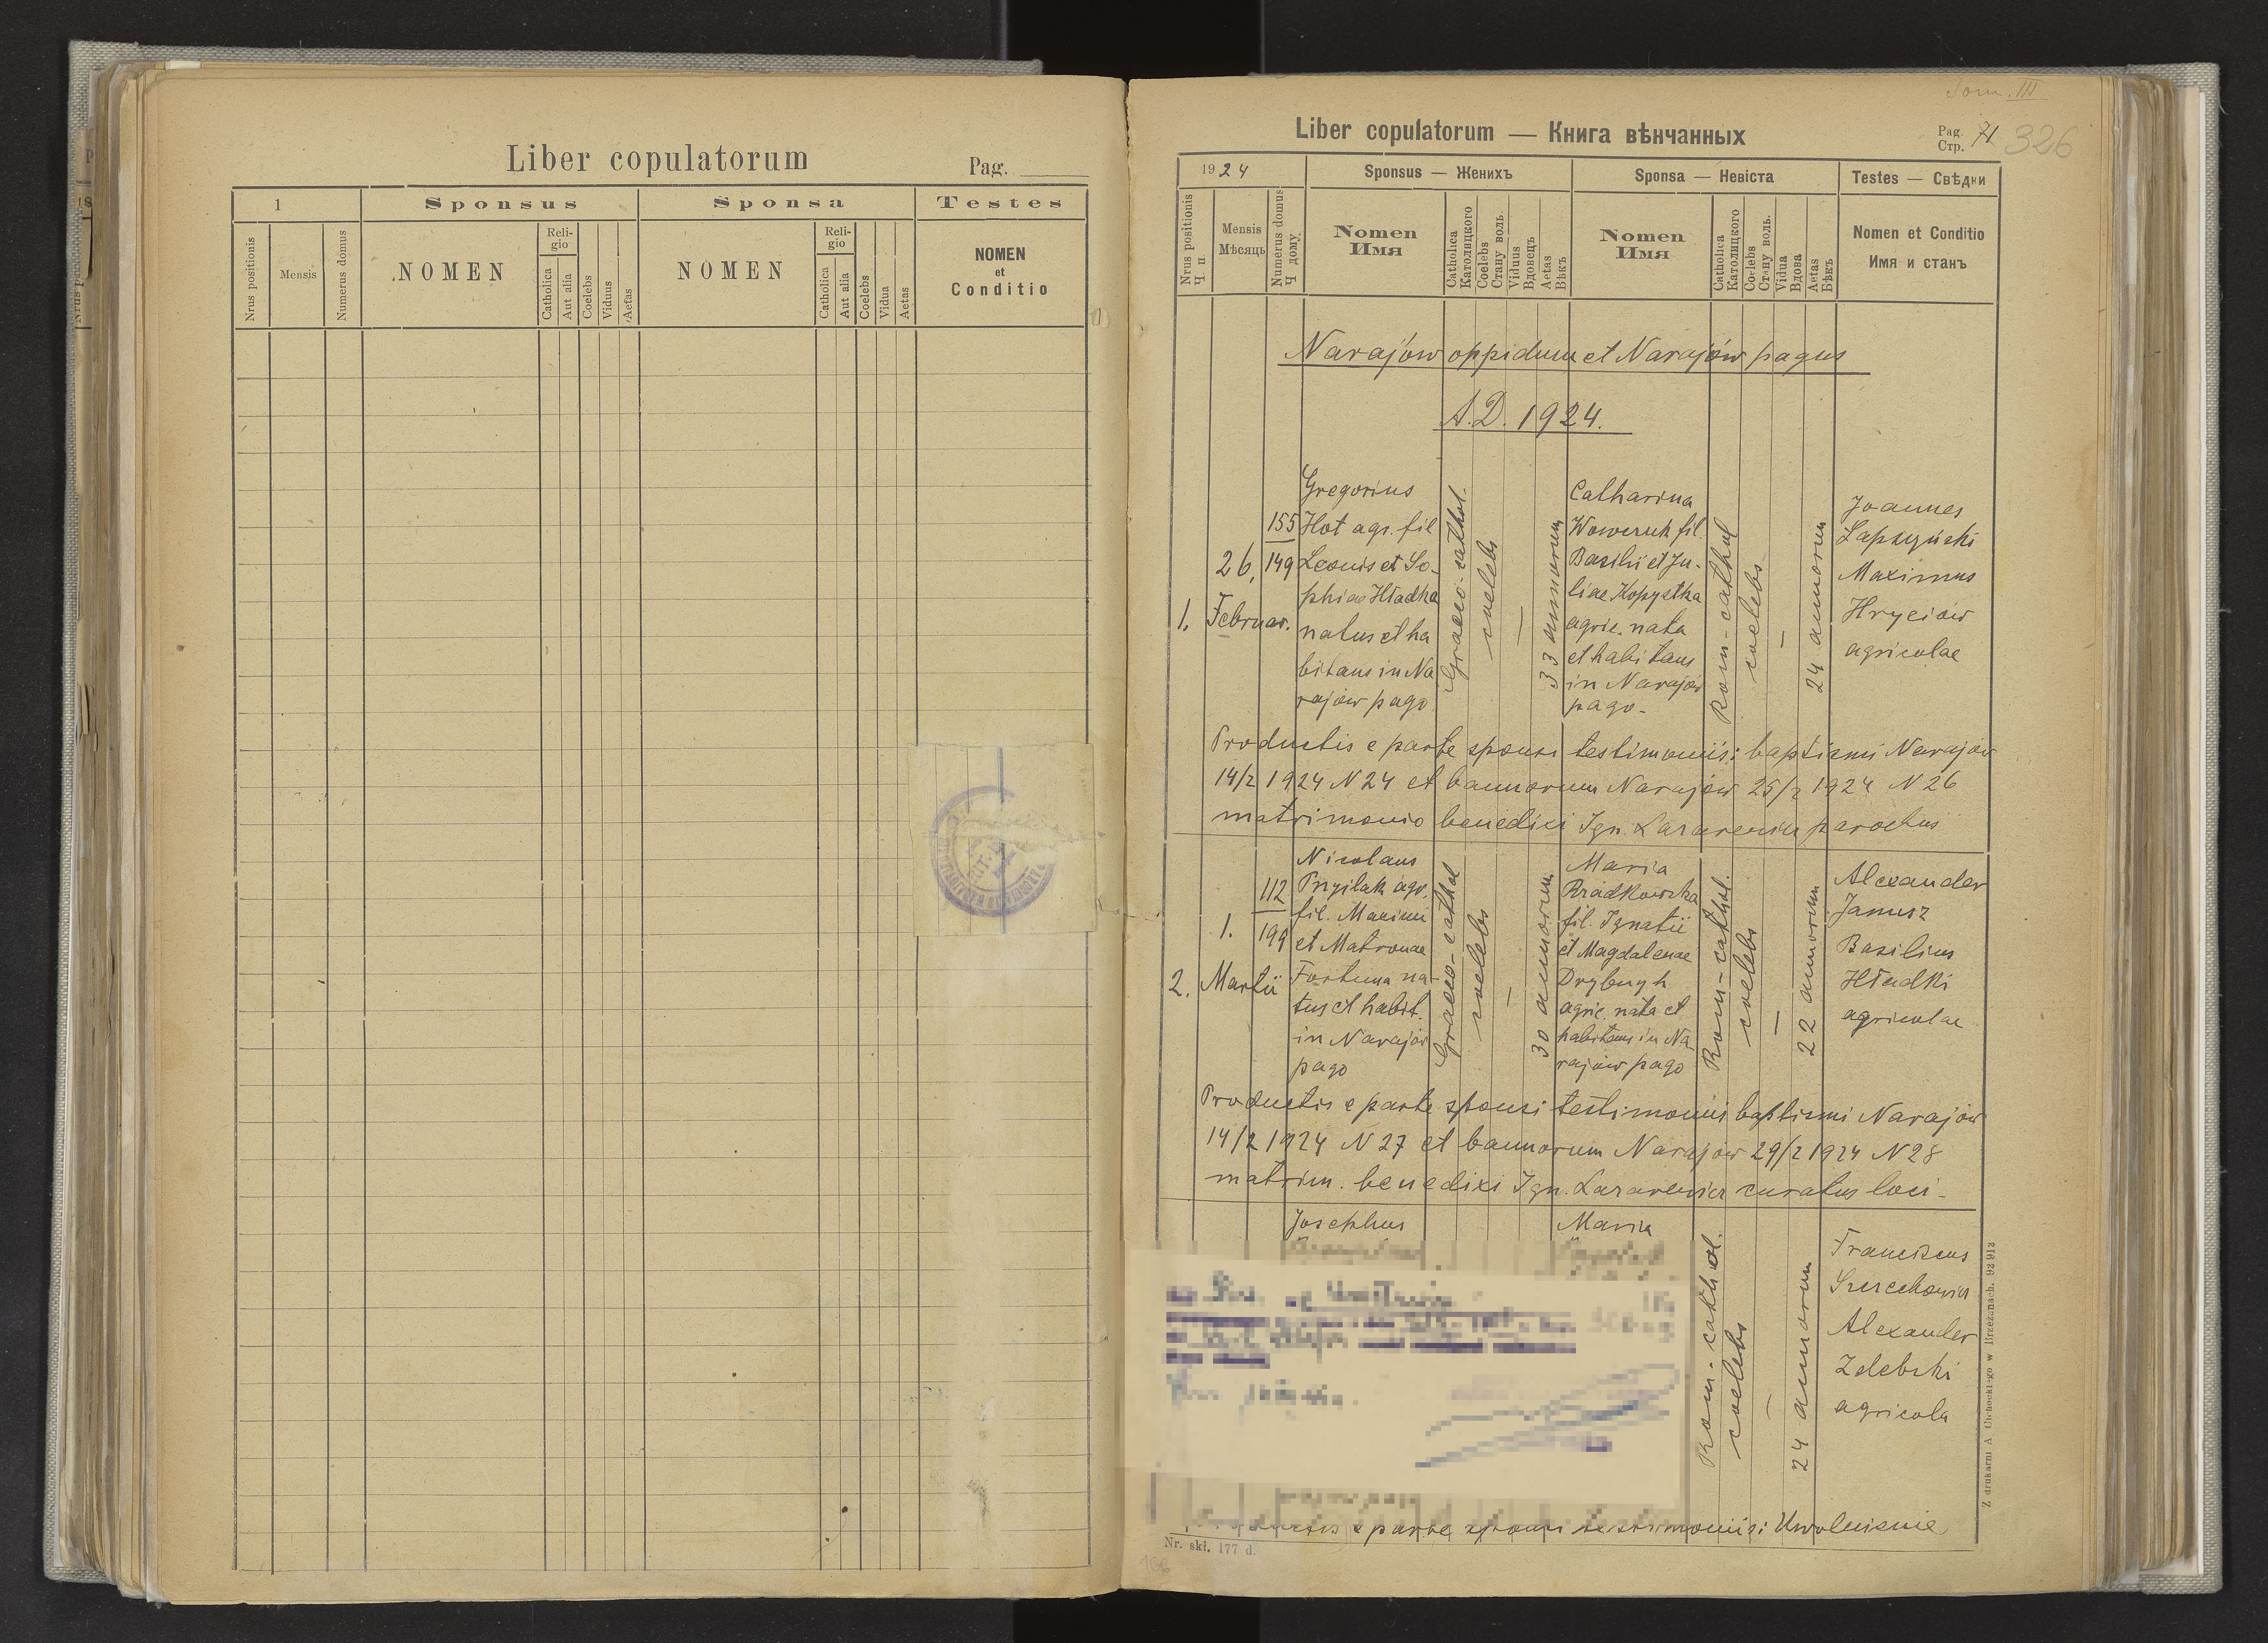 Liber copulatorum
Pag.
1
Sponsus
Sponsa
Testes
Nrus positionis
Mensis
Numerus domus
NOMEN
Religio
Catholica
Aut alia
Coelebs
Viduus
Aetas
NOMEN
Religio
Catholica
Aut alia
Coelebs
Vidua
Aetas
NOMEN
et
Conditio
Tom. III
Liber copulatorum — Книга вѣнчанных
Pag.
Стр.
71
326
1924
Sponsus — Женихъ
Sponsa — Невіста
Testes — Свѣдки
Nrus positionis
Ч п
Mensis
Мѣсяць
Numerus domus
Ч дому
Nomen
Имя
Catholica
Католицкого
Coelebs
Стану воль.
Viduus
Вдовецъ
Aetas
Вѣкъ
Nomen
Имя
Catholica
Католицкого
Coelebs
Стану воль.
Vidua
Вдова
Aetas
Вѣкъ
Nomen et Conditio
Имя и станъ
Narajów oppidum et Narajów pagus
A.D. 1924.
1.
26.
Februar.
155
149
Gregorius
Hot agr. fil
Leonis et So-
phiae Hładka
natus et ha
bitans in Na
rajów pago
Graeco-cathol.
coelebs
—
33 annorum
Catharina
Woweruk fil.
Basilii et Ju-
liae Kopystka
agric. nata
et habitans
in Narajów
pago-
Rom-cathol
coelebs
—
24 annorum
Joannes
Łapszyński
Maximus
Hryciów
agricolae
Productis e parte sponsi testimoniis: baptismi Narajów
14/2 1924 N 24 et bannorum Narajów 25/2 1924 N 26
matrimonio benedixi Ign. Lazarewicz parochus
2.
1.
Martii
112
199
Nicolaus
Pryjlak agr.
fil. Maximi
et Matronae
Fortuna na-
tus et habit.
in Narajów
pago
Graeco-cathol
coelebs
—
30 annorum
Maria
Rządkowska
fil. Ignatii
et Magdalenae
Drybugh
agric. nata et
habitans in Na
rajów pago
Rom-cathol.
coelebs
—
22 annorum
Alexander
Janusz
Basilius
Hładki
agricolae
Productis e parte sponsi testimoniis baptismi Narajów
14/2 1924 N 27 et bannorum Narajów 29/2 1924 N 28
matrim. benedixi Ign. Lazarewicz curatus loci-
Josephus
Maria
Rom-cathol.
coelebs
—
24 annorum
Franciscus
Szczechowicz
Alexander
Zdebski
agricola
e parte sponsi testimoniis: Uwolnienie
Nr. skł. 177 d.
Z drukarni A Cichockiego w Brzeżanach. 92 913